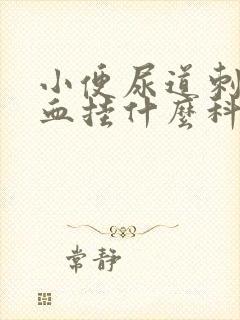 小便尿道刺
血挂什麼科
常静